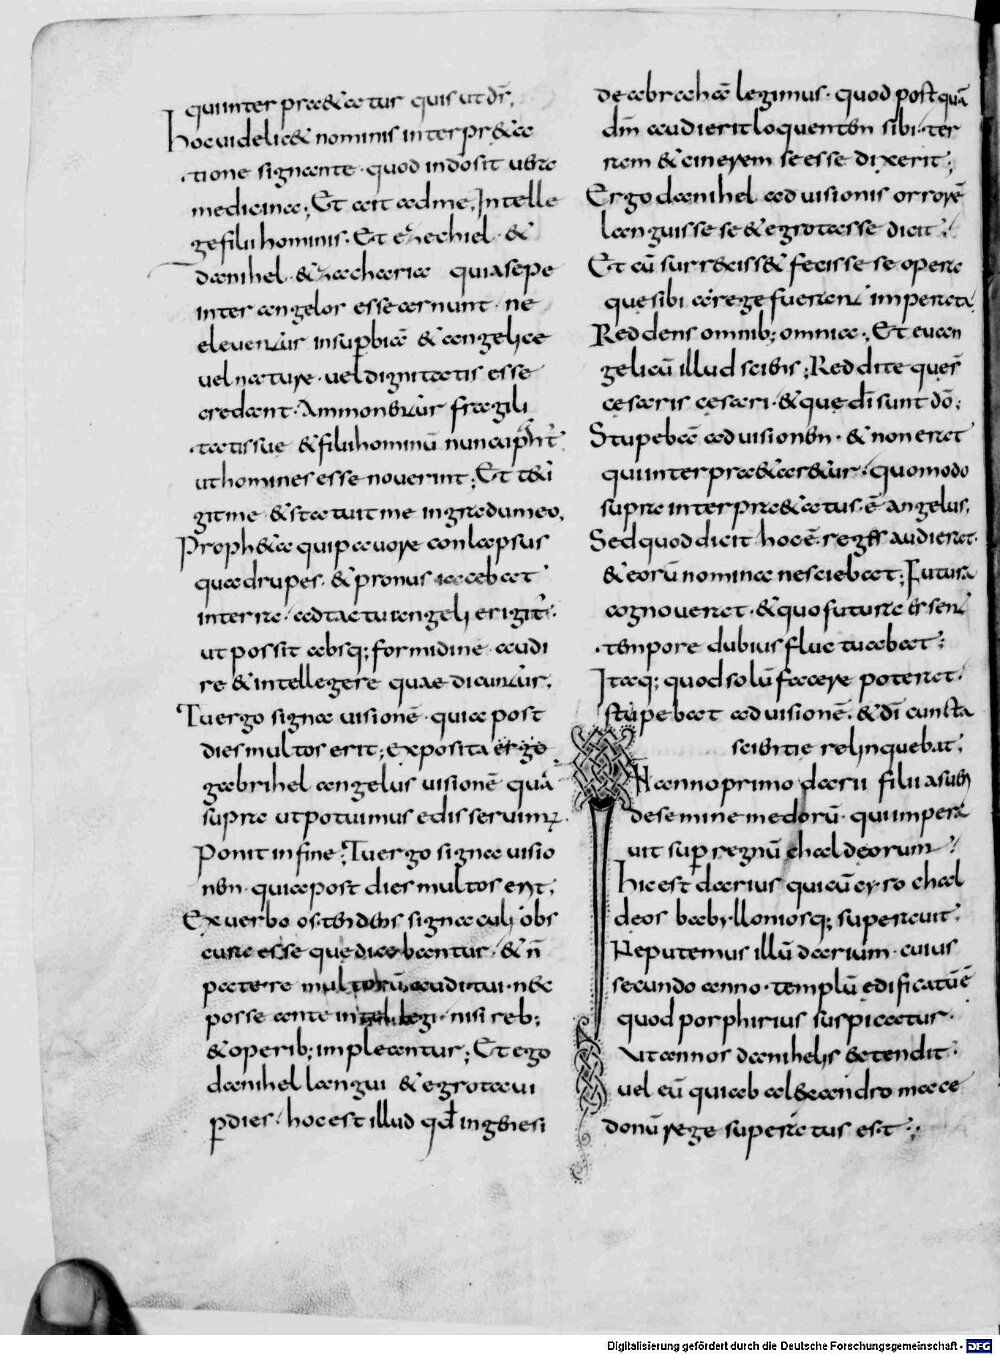 qui interpr&atur quis ut dī.
Hac videlic& nominis interpr&a
tione signante quod in dō sit vera
medicina; Et ait ad me, Intelle
ge fili hominis. Et ezechiel &
danihel & zacharia quia sepe
inter angelos esse cernunt ne
eleventur in superbiā & angelice
vel nature vel dignitatis esse
credant. Ammonentur fragili
tatis sue & filii hominū nuncupant̄
ut homines esse noverint; Et t&i
git me & statuit me in gradu meo,
Proph&a qui pavore conlapsus
quadrupes & pronus iacebat
in terra ad tactū angeli erigit̄.
ut possit absq; formidine audi
re & intellegere quae dicuntur.
Tu ergo signa visionē quia post
dies multos erit; Exposita ergo
gabrihel angelus visionē quā
supra ut potuimus edisseruim;
Ponit in fine; Tu ergo signa visio
nen quia post dies multos erit;
Ex verbo ostendens signaculi obs
cura esse que dicebantur & n̄
patere multorū auditui nec
posse ante intellegi nisi reb;
& operib; impleantur; Et ego
danihel langui & egrotavi
p dies hoc est illud qd in genesi
de abrahā legimus. quod postquā
dm̄ audierit loquenten sibi ter
ram & cinerem se esse dixerit;
Ergo danihel ad visionis orrorē
languisse se & egrotasse dicit;
Et cū surrexiss& fecisse se opera
que sibi a rege fuerant imperata.
Reddens omnib; omnia; Et euan
gelicū illud sciens; Reddite que sn̄
cesaris cesari & que dī sunt dō;
Stupebā ad visionen & non erat
qui interpr&ar&ur quomodo
supra interpr&atus ē angelus,
Sed quod dicit hoc ē reges audierat
& eorū nomina nesciebat; Futura
cognoverat & quo futura essent
tempore dubius fluctuabat;
Itaq; quod solū facere poterat
stupebat ad visionē & dī cuncta
scientie relinquebat;
IN anno primo darii filii asueri
de semine medorū qui impera
vit super regnū chaldeorum;
Hic est darius qui cū cyro chal
deos babylloniosq; superavit;
Ne putemus illū darium cuius
secundo anno templū edificatū ē
quod porphirius suspicatur
Ut annos danihelis extendit;
vel eū qui ab alexandro mace
donū rege superatus est;
Digitalisierung gefördert durch die Deutsche Forschungsgemeinschaft - DFG